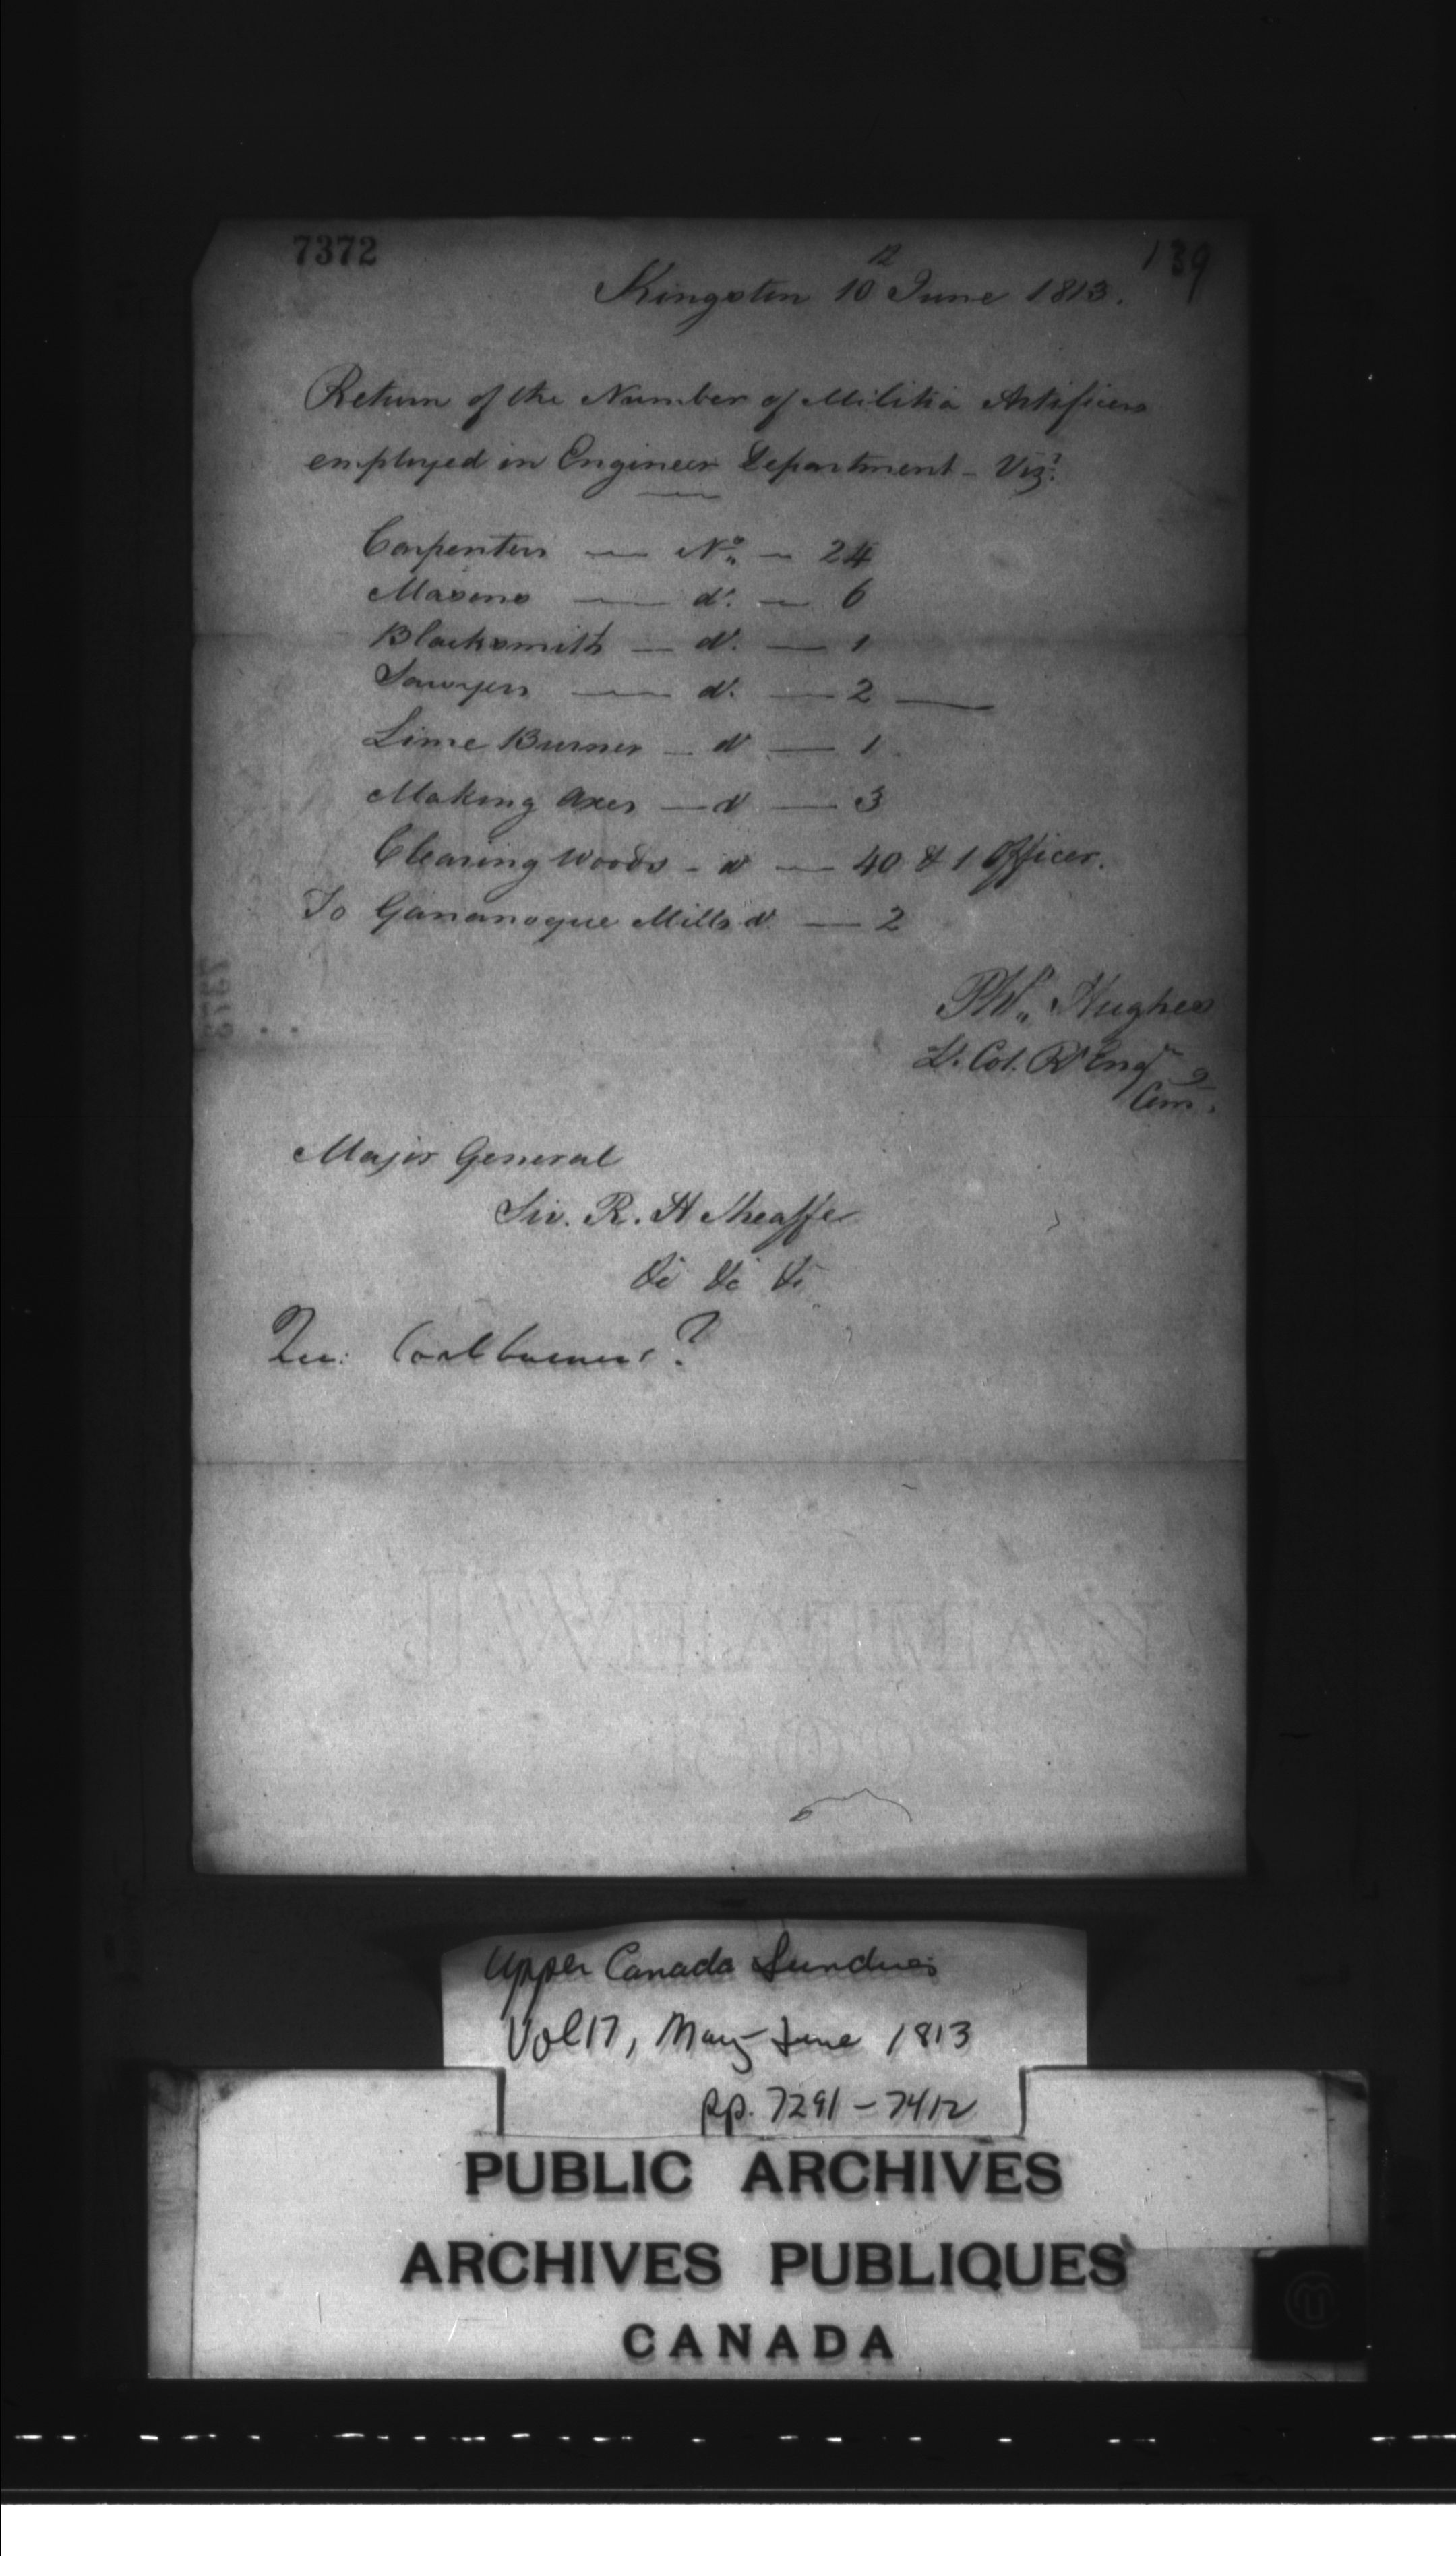 7372
139
12
Kingston 10 June 1813.
Return of the Number of Militia Artificers
employed in Engineer Department - Vizt.
Carpenters — No. — 24
Masons — do. — 6
Blacksmith — do. — 1
Sawyers — do. — 2 —
Lime Burner — do — 1
Making Axes — do — 3
Clearing Woods - do — 40 & 1 Officer.
To Gananoque Mills do — 2
Phl. Hughes
Lt. Col. Rl Engrs
Com.
Major General
Sir. R. H Sheaffe
&c &c &c
Qu: Coalburners?
Upper Canada Sundries
Vol 17, May-June 1813
pp. 7291-7412
PUBLIC ARCHIVES
ARCHIVES PUBLIQUES
CANADA